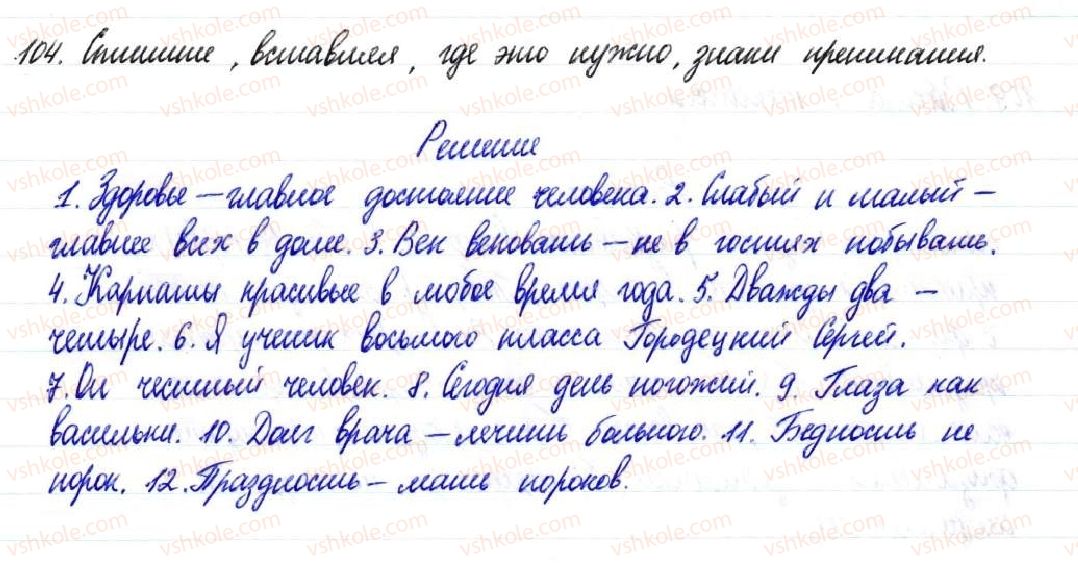 104. Спишите, вставляя, где это нужно, знаки препинания.
Решение
1. Здоровье – главное достояние человека. 2. Слабый и малый –
главнее всех в доме. 3. Век вековать – не в гостях побывать.
4. Карпаты красивые в любое время года. 5. Дважды два –
четыре. 6. Я ученик восьмого класса Городецкий Сергей.
7. Он честный человек. 8. Сегодня день погожий. 9. Глаза как
васильки. 10. Долг врача – лечить больного. 11. Бедность не
порок. 12. Праздность – мать пороков.
vshkole.com